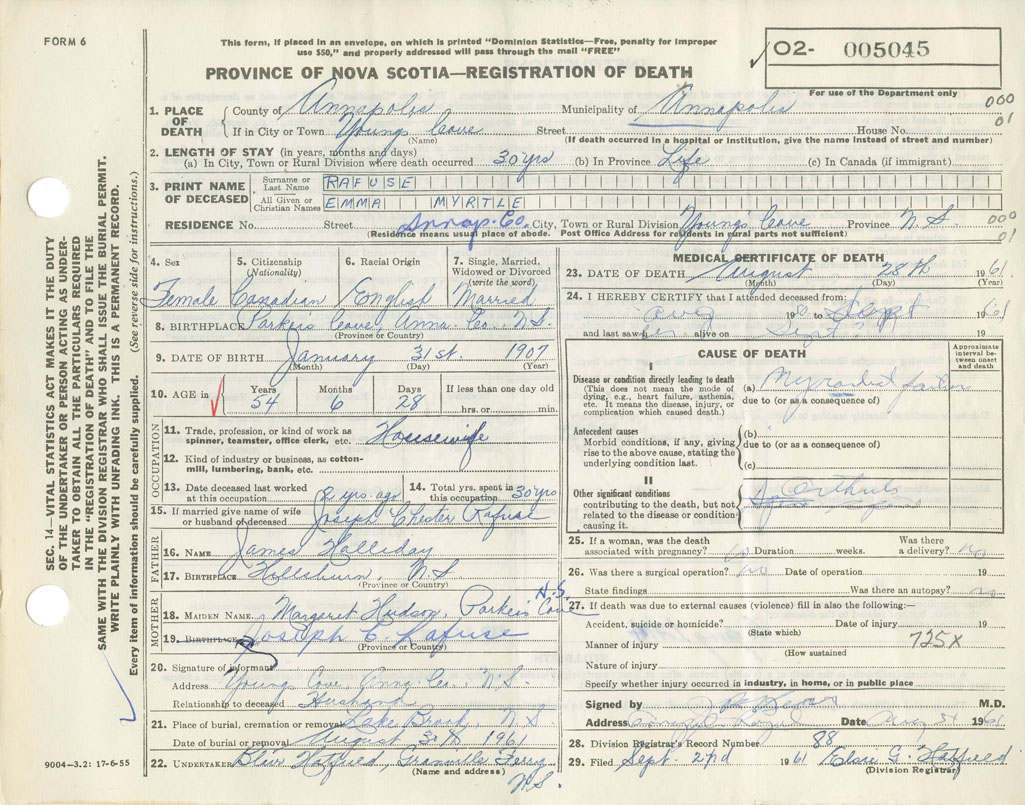 FORM 6
This form, if placed in an envelope, on which is printed "Dominion Statistics—Free, penalty for improper
use $50," and properly addressed will pass through the mail "FREE"
✓ 02- 005045
PROVINCE OF NOVA SCOTIA—REGISTRATION OF DEATH
For use of the Department only
000
01
1. PLACE OF DEATH { County of Annapolis Municipality of Annapolis
If in City or Town Young's Cove Street House No.
(Name) (If death occurred in a hospital or institution, give the name instead of street and number)
2. LENGTH OF STAY (in years, months and days)
(a) In City, Town or Rural Division where death occurred 30 yrs (b) In Province Life (c) In Canada (if immigrant)
3. PRINT NAME OF DECEASED
Surname or Last Name RAFUSE
All Given or Christian Names EMMA MYRTLE
RESIDENCE No. Street Annap. Co. City, Town or Rural Division Young's Cove Province N.S.
(Residence means usual place of abode. Post Office Address for residents in rural parts not sufficient)
000
01
4. Sex 5. Citizenship (Nationality) 6. Racial Origin 7. Single, Married, Widowed or Divorced (write the word)
Female Canadian English Married
8. BIRTHPLACE Parker's Cove, Anna. Co. N.S.
(Province or Country)
9. DATE OF BIRTH January 31st. 1907
(Month) (Day) (Year)
10. AGE in Years Months Days If less than one day old
54 6 28 hrs. or min.
OCCUPATION
11. Trade, profession, or kind of work as spinner, teamster, office clerk, etc. Housewife
12. Kind of industry or business, as cotton-mill, lumbering, bank, etc.
13. Date deceased last worked at this occupation yrs. ago 14. Total yrs. spent in this occupation 30 yrs
15. If married give name of wife or husband of deceased Joseph Chester Rafuse
FATHER
16. NAME James Halliday
17. BIRTHPLACE Hillsburn, N.S
(Province or Country)
MOTHER
18. MAIDEN NAME Margaret Hudson, Parker's Cove N.S.
19. BIRTHPLACE Joseph C. Rafuse
(Province or Country)
20. Signature of informant
Address Youngs Cove, Anna Co., N.S.
Relationship to deceased Husband
21. Place of burial, cremation or removal Lake Brook, N.S
Date of burial or removal August 30th 1961
22. UNDERTAKER Hatfield, Granville Ferry
(Name and address) N.S.
MEDICAL CERTIFICATE OF DEATH
23. DATE OF DEATH August 28th 1961
(Month) (Day) (Year)
24. I HEREBY CERTIFY that I attended deceased from:
19 to Sept 1961
and last saw alive on 19
CAUSE OF DEATH
Approximate interval between onset and death
I
Disease or condition directly leading to death
(This does not mean the mode of dying, e.g., heart failure, asthenia, etc. It means the disease, injury, or complication which caused death.)
(a) Myocardial failure
due to (or as a consequence of)
Antecedent causes
Morbid conditions, if any, giving rise to the above cause, stating the underlying condition last.
(b)
due to (or as a consequence of)
(c)
II
Other significant conditions
contributing to the death, but not related to the disease or condition causing it.
Arthritis
25. If a woman, was the death associated with pregnancy? no Duration weeks. Was there a delivery? no
26. Was there a surgical operation? no Date of operation 19
State findings Was there an autopsy? no
27. If death was due to external causes (violence) fill in also the following:—
Accident, suicide or homicide? Date of injury 19
(State which)
Manner of injury 725X
(How sustained
Nature of injury
Specify whether injury occurred in industry, in home, or in public place
Signed by M.D.
Address Date 1961
28. Division Registrar's Record Number 88
29. Filed Sept. 2nd 1961 G. Hatfield
(Division Registrar)
SEC. 14—VITAL STATISTICS ACT MAKES IT THE DUTY
OF THE UNDERTAKER OR PERSON ACTING AS UNDER-
TAKER TO OBTAIN ALL THE PARTICULARS REQUIRED
IN THE "REGISTRATION OF DEATH" AND TO FILE THE
SAME WITH THE DIVISION REGISTRAR WHO SHALL ISSUE THE BURIAL PERMIT.
WRITE PLAINLY WITH UNFADING INK. THIS IS A PERMANENT RECORD.
Every item of information should be carefully supplied. (See reverse side for instructions.)
9004—3.2: 17-6-55